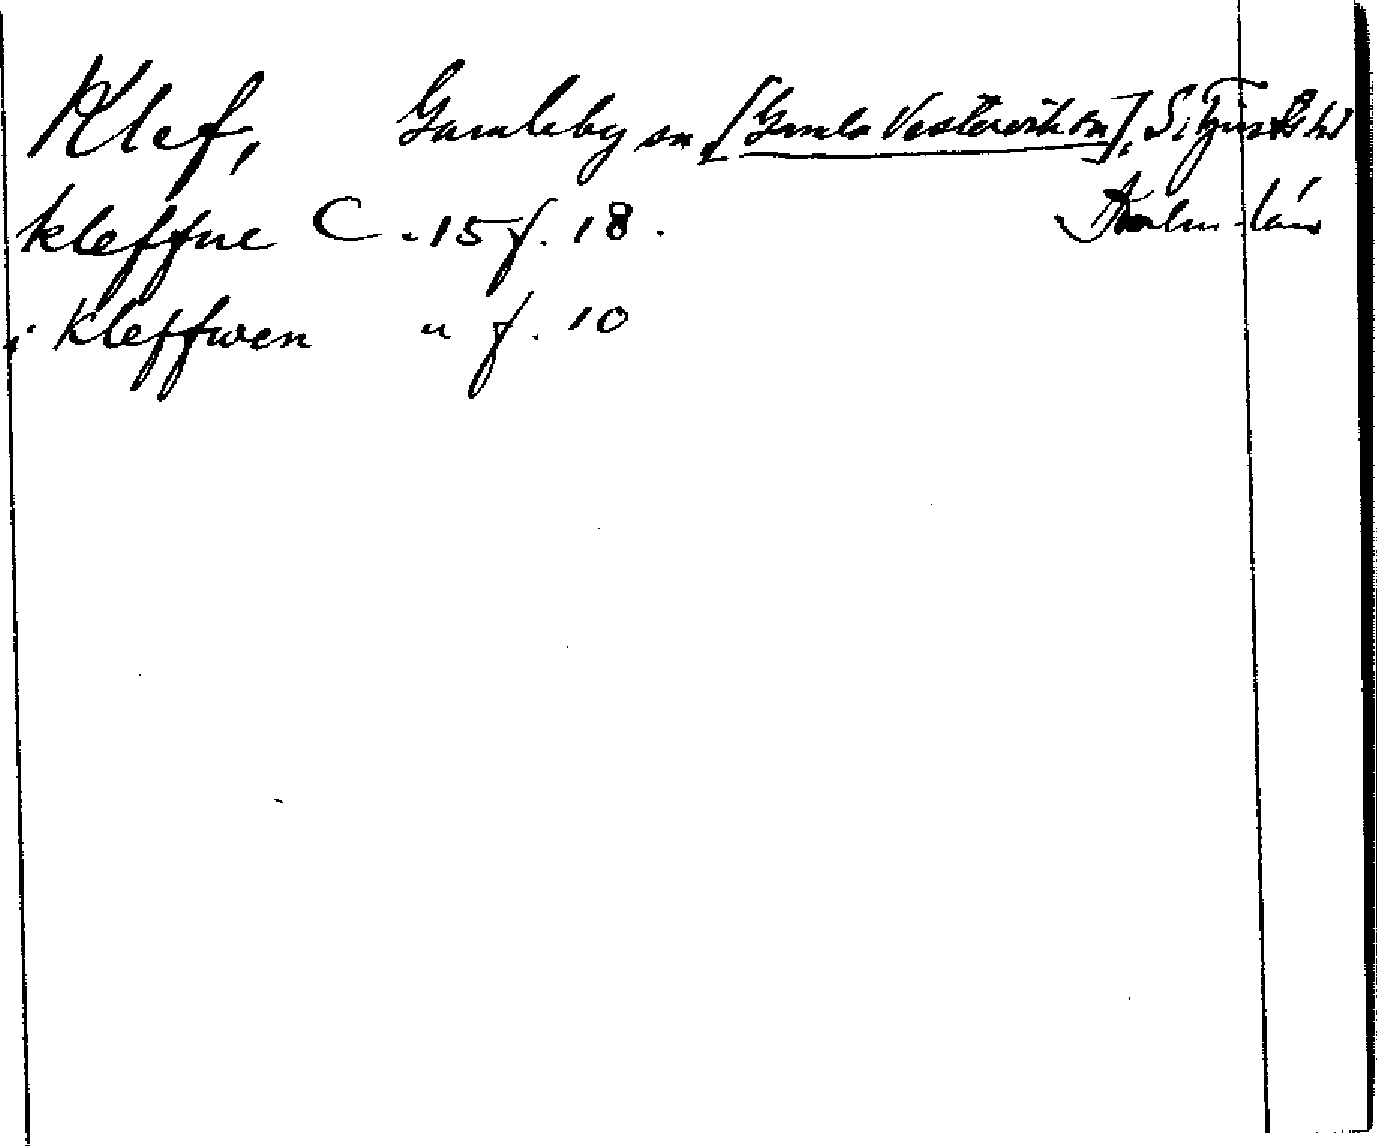 Klef, Gamleby sn [Gamla Västervik sn], S. Tjusts hd
Kleffue C-15 f. 18. Kalm. län
i Kleffwen " f. 10